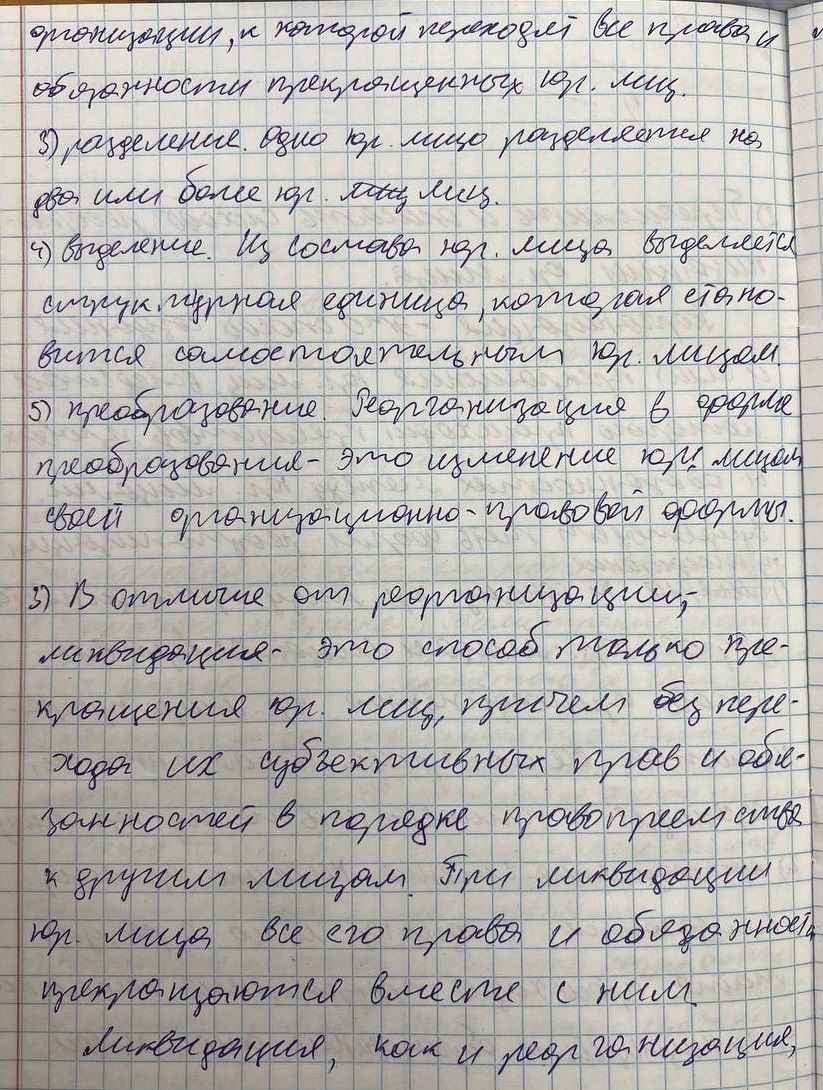 организации, к которой переходят все права и
обязанности прекращенных юр. лиц.
3) разделение. Одно юр. лицо разделяется на
два или более юр. лиц.
4) выделение. Из состава юр. лица выделяется
структурная единица, которая стано-
вится самостоятельным юр. лицом.
5) преобразование. Реорганизация в форме
преобразования - это изменение юр. лицом
своей организационно-правовой формы.
3) В отличие от реорганизации,
ликвидация - это способ только пре-
кращения юр. лиц, причем без пере-
хода их субъективных прав и обя-
занностей в порядке правопреемства
к другим лицам. При ликвидации
юр. лица все его права и обязанности
прекращаются вместе с ним
Ликвидация, как и реорганизация,